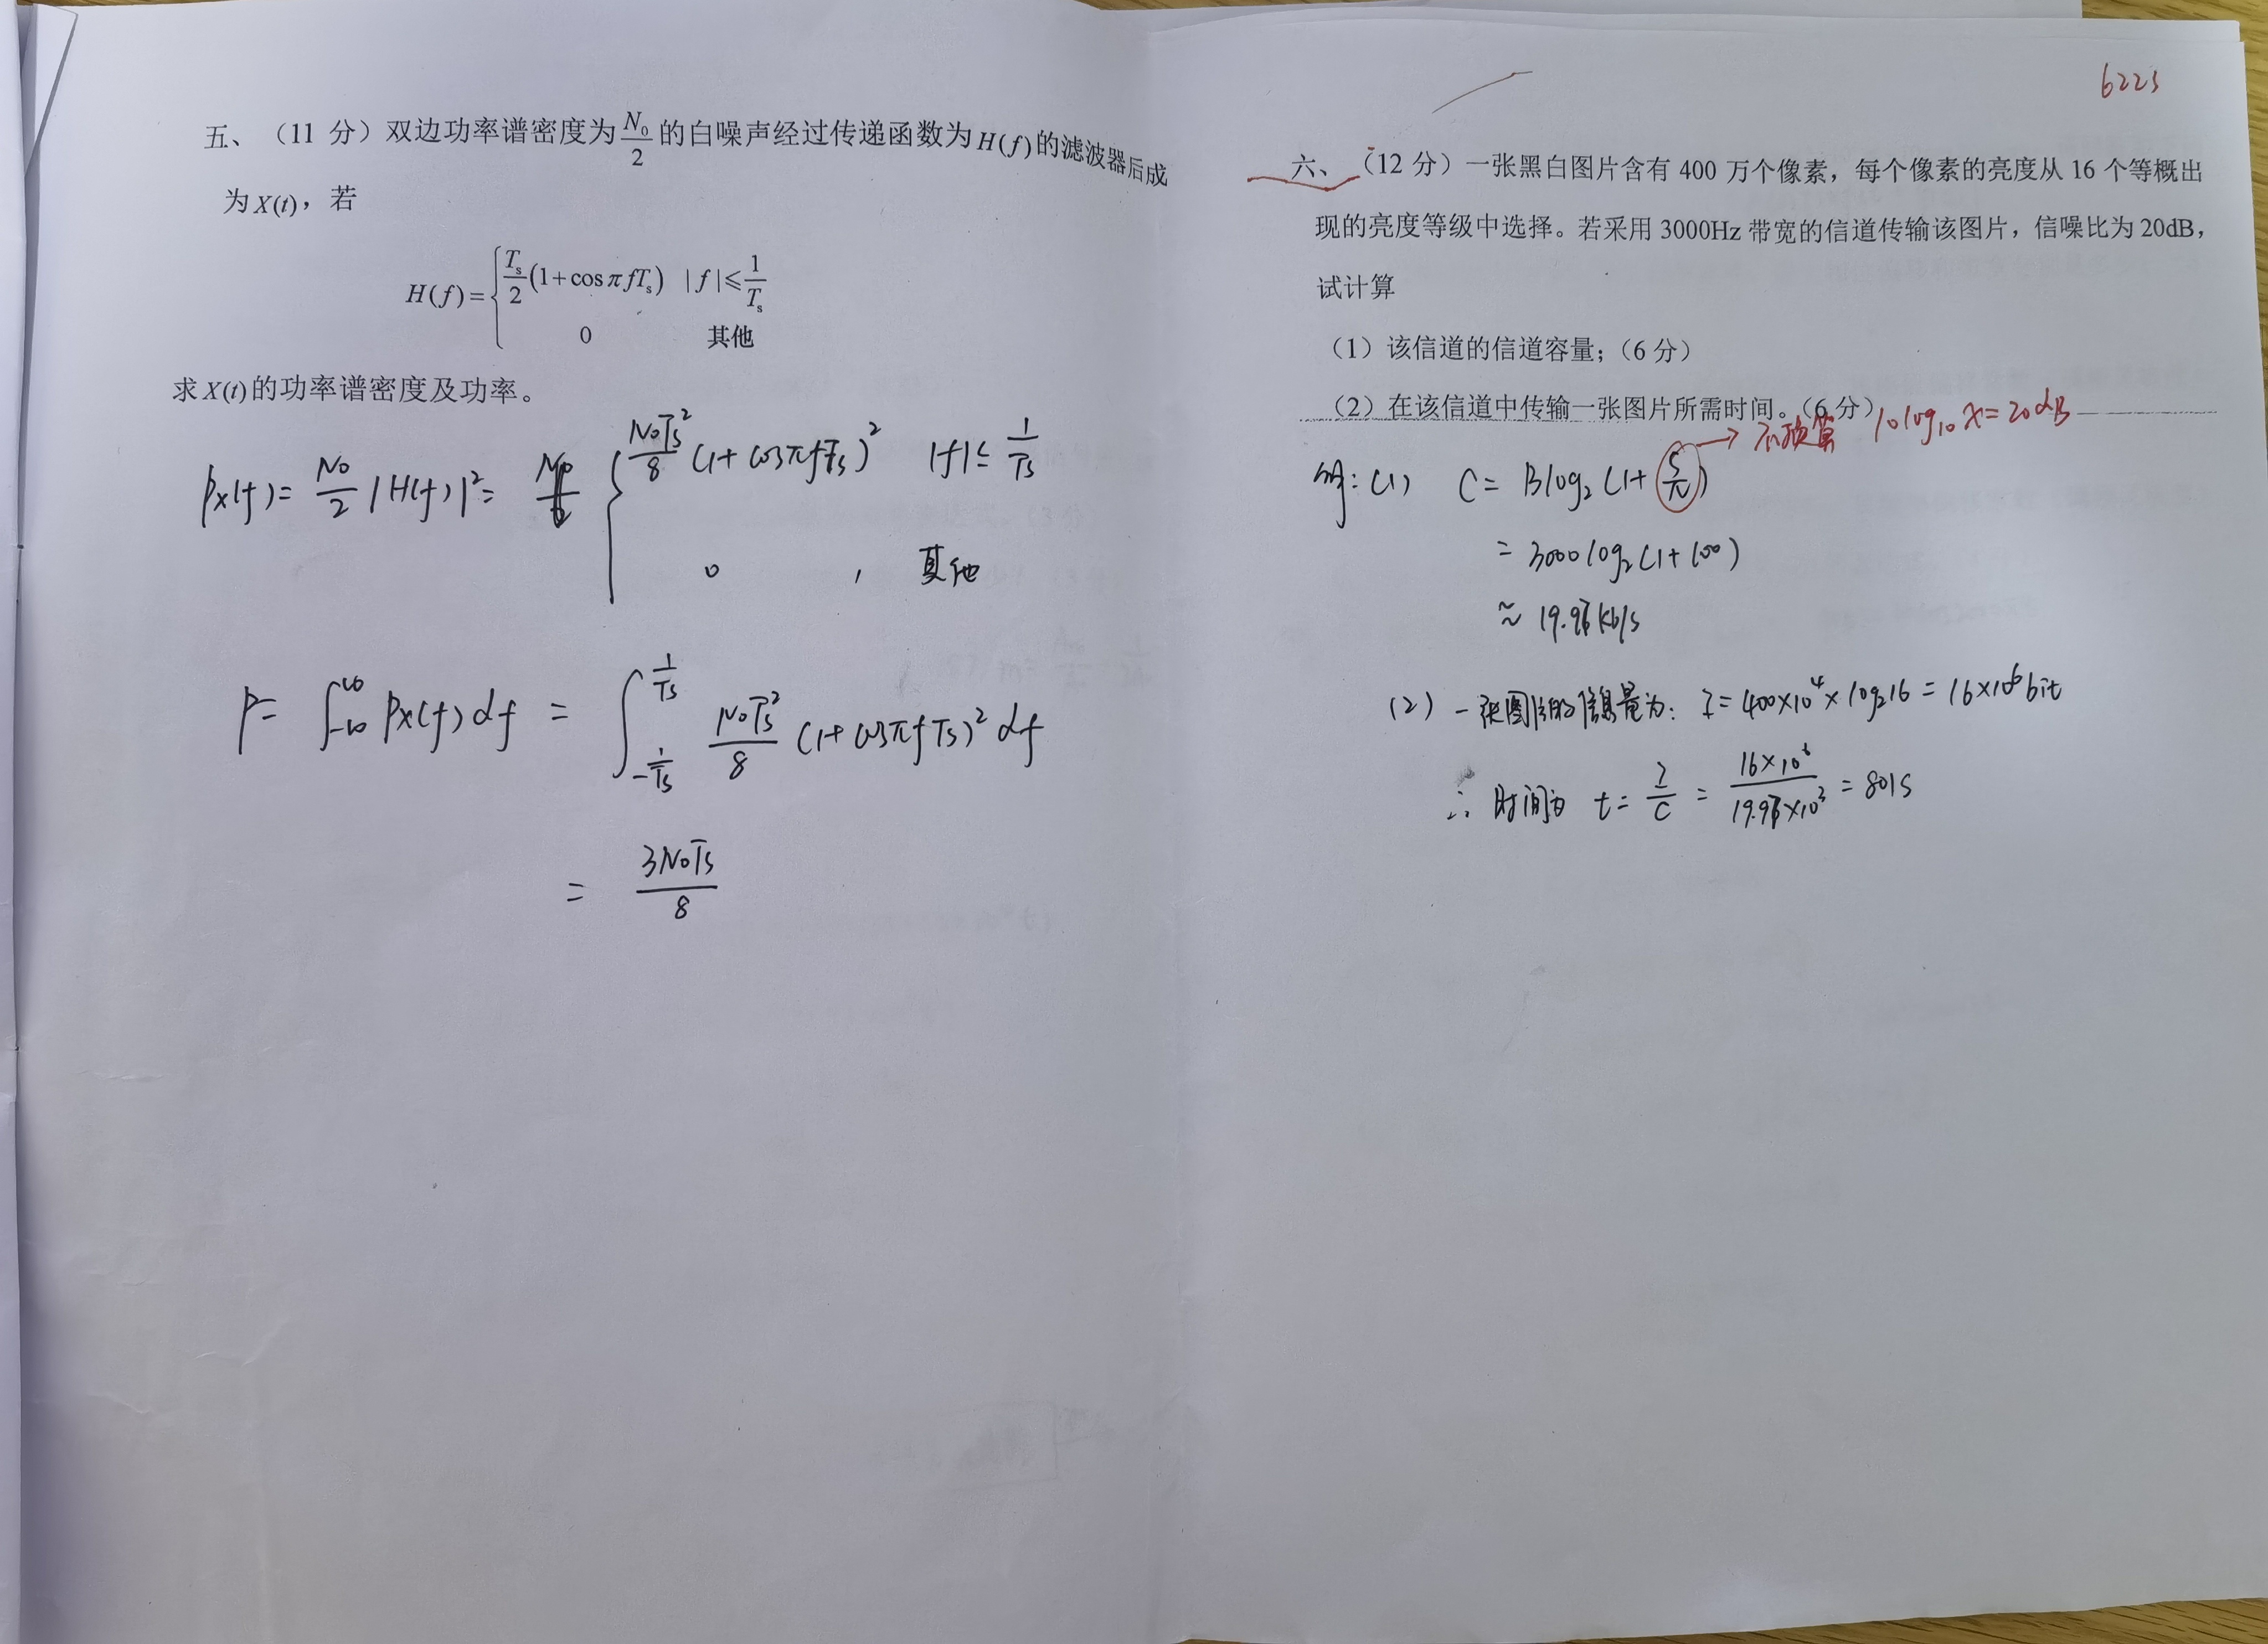 五、（11 分）双边功率谱密度为 N₀/2 的白噪声经过传递函数为 H(f) 的滤波器后成
为 X(t)，若
H(f) = { Tₛ/2 (1+cos π f Tₛ) | f |⩽ 1/Tₛ
0 其他
求 X(t) 的功率谱密度及功率。
Px(f) = N₀/2 |H(f)|² = { N₀Ts²/8 (1+cosπfTs)² |f|≤ 1/Ts
0 , 其他
P = ∫_{-∞}^{∞} Px(f) df = ∫_{-1/Ts}^{1/Ts} N₀Ts²/8 (1+cosπfTs)² df
= 3N₀Ts/8
622s
六、（12 分）一张黑白图片含有 400 万个像素，每个像素的亮度从 16 个等概出
现的亮度等级中选择。若采用 3000Hz 带宽的信道传输该图片，信噪比为 20dB，
试计算
（1）该信道的信道容量；（6 分）
（2）在该信道中传输一张图片所需时间。（6 分）
→ 10log₁₀ x = 20dB
解: (1) C = Blog₂ (1+ S/N)
= 3000log₂ (1+100)
≈ 19.98kb/s
(2) 一张图片的信息量为: I = 400×10⁴×log₂16 = 16×10⁶bit
∴ 时间为 t = I/C = 16×10⁶/19.98×10³ = 801s